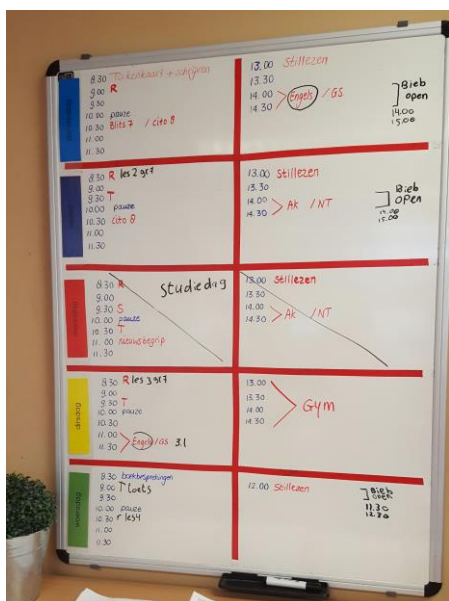 8.30 Takenkaart + schrijven
9.00 R
9.30
10.00 pauze
10.30 Blits 7 / cito 8
11.00
11.30
13.00 Stillezen
13.30
14.00 Engels / GS
14.30
Bieb
open
14.00
15.00
8.30 R les 2 gr7
9.00
9.30 T
10.00 pauze
10.30 cito 8
11.00
11.30
13.00 Stillezen
13.30
14.00 Ak / NT
14.30
Bieb
open
15.00
8.30 R
9.00
9.30 S
10.00 pauze
10.30 T
11.00 nieuwsbegrip
11.30
Studiedag
13.00 Stillezen
13.30
14.00 Ak / NT
14.30
8.30 R les 3 gr7
9.00
9.30 T
10.00 pauze
10.30
11.00 Engels / GS 3.1
11.30
13.00
13.30 Gym
14.00
14.30
8.30 boekbesprekingen
9.00 T toets
9.30
10.00 pauze
10.30 r les 4
11.00
11.30
12.00 Stillezen
Bieb
open
11.30
12.30